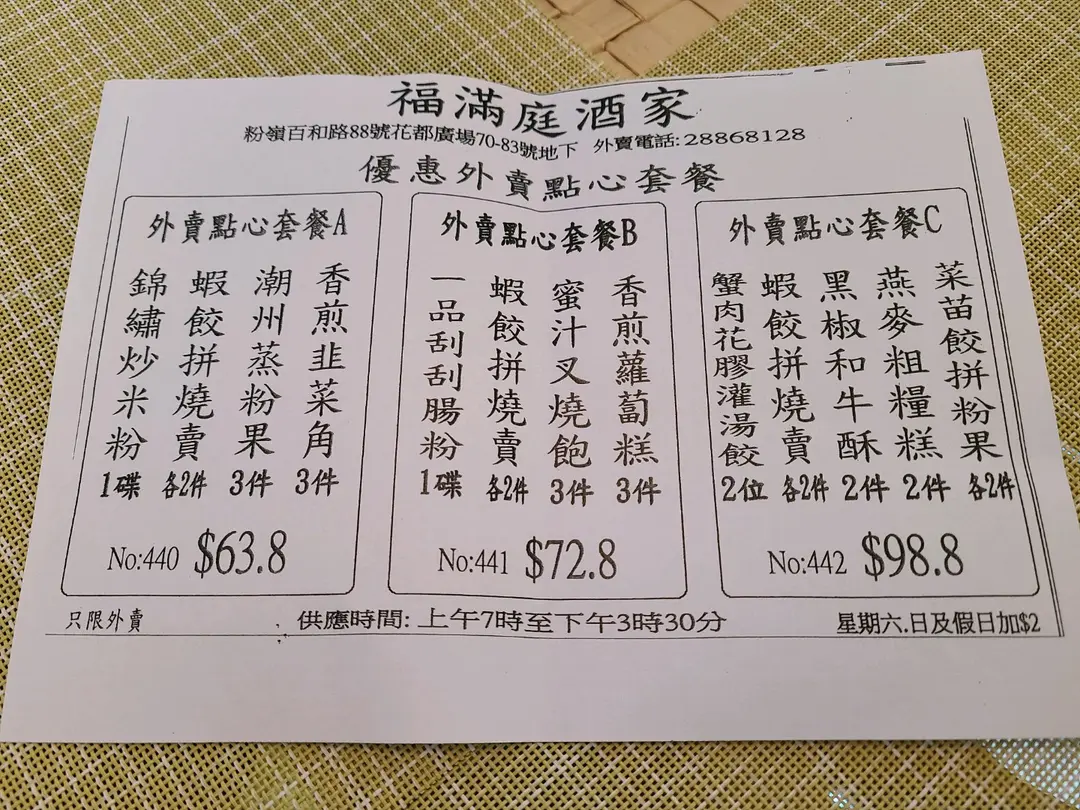 福滿庭酒家
粉嶺百和路88號花都廣場70-83號地下 外賣電話:28868128
優惠外賣點心套餐
外賣點心套餐A
錦繡炒米粉
1碟
蝦餃拼燒賣
各2件
潮州蒸粉果
3件
香煎韭菜角
3件
No:440 $63.8
外賣點心套餐B
一品刮刮腸粉
1碟
蝦餃拼燒賣
各2件
蜜汁叉燒飽
3件
香煎蘿蔔糕
3件
No:441 $72.8
外賣點心套餐C
蟹肉花膠灌湯餃
2位
蝦餃拼燒賣
各2件
黑椒和牛酥
2件
燕麥粗糧糕
2件
菜苗餃拼粉果
各2件
No:442 $98.8
只限外賣 供應時間: 上午7時至下午3時30分 星期六.日及假日加$2